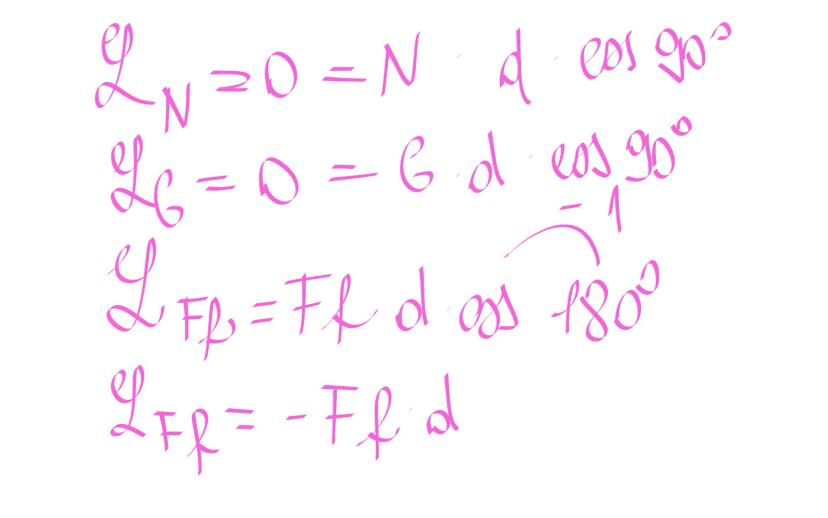 L_N = 0 = N · d · cos 90°
L_G = 0 = G · d · cos 90°
-1
L_Ff = Ff · d · cos 180°
L_Ff = - Ff · d